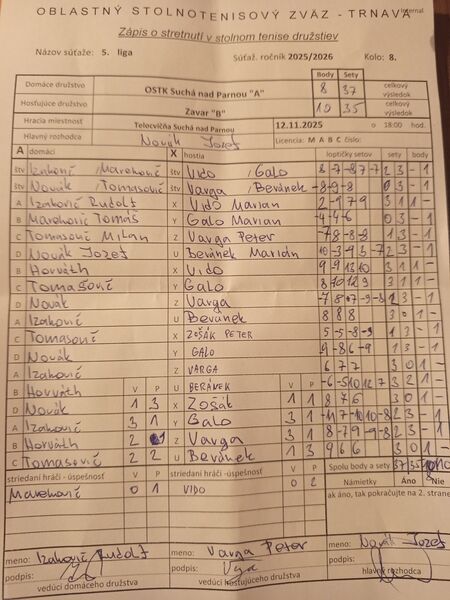 OBLASTNÝ STOLNOTENISOVÝ ZVÄZ - TRNAVA
Zápis o stretnutí v stolnom tenise družstiev
Názov súťaže: 5. liga Súťaž. ročník 2025/2026 Kolo: 8.
Body Sety
Domáce družstvo OSTK Suchá nad Parnou "A" 8 37 celkový výsledok
Hosťujúce družstvo Zavar "B" 10 35 celkový výsledok
Hracia miestnosť Telocvičňa Suchá nad Parnou 12.11.2025 o 18:00 hod.
Hlavný rozhodca Novák Jozef Licencia: M A B C číslo:
A domáci X hostia loptičky setov sety body
štv Izakovič /Marekovič štv Vido /Galo 8 -7 -8 7 -7 2 3 - 1
štv Novák /Tomasovič štv Varga /Bevánek -8 -9 -8 0 3 - 1
A Izakovič Rudolf X Vido Marian 2 -9 7 9 3 1 1 -
B Marekovič Tomáš Y Galo Marian -4 -4 -6 0 3 - 1
C Tomasovič Milan Z Varga Peter 1 3 - 1
D Novák Jozef U Bevánek Marián 2 3 - 1
B Horváth X Vido 9 9 13 10 3 1 1 -
C Tomasovič Y Galo 3 1 1 -
D Novák Z Varga 2 3 - 1
A Izakovič U Bevánek 8 8 8 3 0 1 -
C Tomasovič X ZOŠÁK PETER 5 -5 -8 -9 1 3 - 1
D Novák Y GALO 9 -8 6 -9 1 3 - 1
A Izakovič Z VARGA 6 7 7 3 0 1 -
B Horváth V P U BERÁNEK V P -6 -5 10 12 7 3 2 1 -
D Novák 1 3 X Zošák 1 1 8 7 6 3 0 1 -
A Izakovič 3 1 Y Galo 3 1 2 3 - 1
B Horváth 2 Z Varga 3 1 2 3 - 1
C Tomasovič 2 2 U Bevánek 1 3 9 6 6 3 0 1 -
striedaní hráči - úspešnosť V P striedaní hráči - úspešnosť V P Spolu body a sety 37 35
Marekovič 0 1 VIDO 0 2 Námietky Áno Nie
ak áno, tak pokračujte na 2. strane
meno: Izakovič Rudolf meno: Varga Peter meno: Novák Jozef
podpis: podpis: podpis:
vedúci domáceho družstva vedúci hosťujúceho družstva hlavný rozhodca